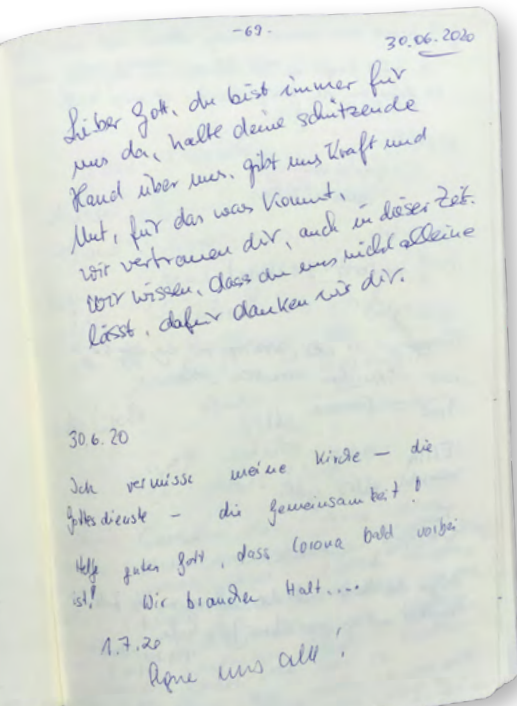 -69.-
30.06.2020
Lieber Gott, du bist immer für
uns da, halte deine schützende
Hand über uns, gibt uns Kraft und
Mut, für das was kommt,
wir vertrauen dir, auch in dieser Zeit.
Wir wissen, dass du uns nicht alleine
lässt, dafür danken wir dir.
30.6.20
Ich vermisse meine Kirche – die
Gottesdienste – die Gemeinsamkeit!
Helfe guter Gott, dass Corona bald vorbei
ist! Wir brauchen Halt....
1.7.20
uns alle!